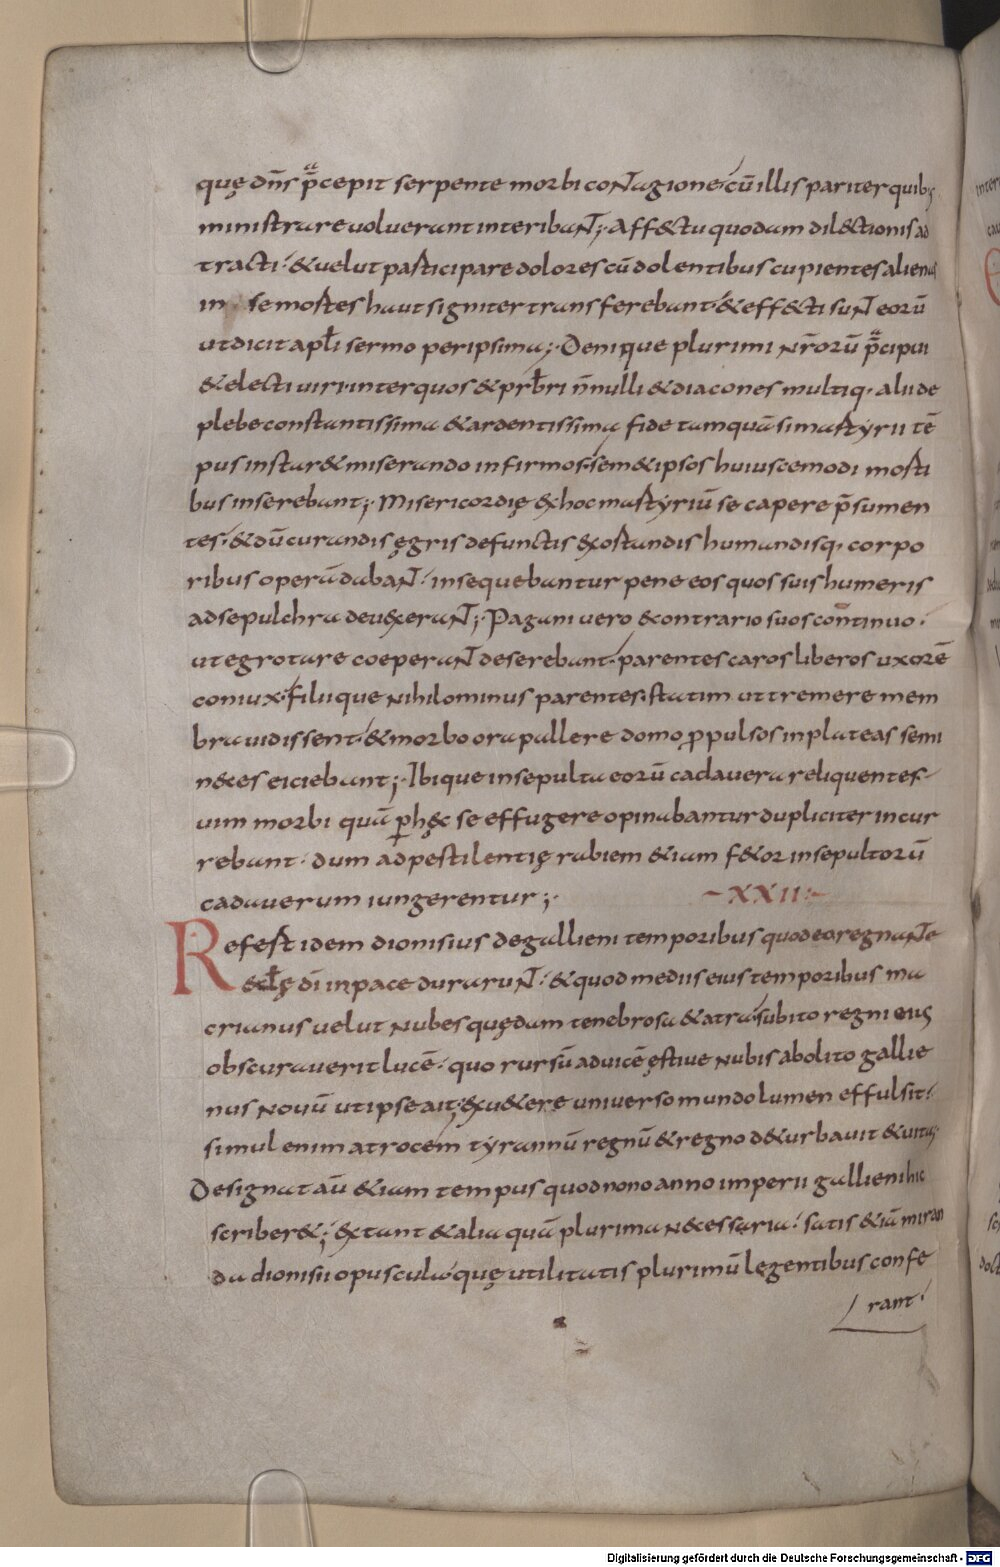 quę dn̄s p̄cepit serpente morbi contagione cū illis pariter quibꝰ
ministrare voluerant interibant; Affectu quodam dilectionis ad
tracti. & velut participare dolores cū dolentibus cupientes alienas
in se mortes haut signiter transferebant. & effecti sunt eorū
ut dicit apl̄i sermo peripsima; Denique plurimi nr̄orū p̄cipui
& electi viri. inter quos & prb̄ri n̄nulli & diacones multiq. alii de
plebe constantissima & ardentissima fide tamquā si martyrii tē
pus instaret miserando infirmos. sem& ipsos huiuscemodi morti
bus inserebant; Misericordię ex hoc martyriū se capere p̄sumen
tes. & dū curandis ęgris defunctis extortandis humandisq. corpo
ribus operā dabant. insequebantur pene eos quos suis humeris
ad sepulchra devexerant; Pagani vero econtrario suos continuo.
ut egrotare coeperant deserebant. parentes caros liberos uxorē
coniux. filiique nihilominus parentes. statim ut tremere mem
bra vidissent. & morbo ora pallere domo ꝓpulsos in plateas semi
neces eiciebant; Ibique insepulta eorū cadavera reliquentes.
vim morbi quā ꝑ hęc se effugere opinabantur dupliciter incur
rebant. dum ad pestilentię rabiem etiam fetor insepultorū
cadaverum iungerentur;
XXII:
Refert idem dionisius de gallieni temporibus quod eo regnante
eccl̄ę dī in pace durarunt. & quod mediis eius temporibus ma
crianus velut nubes quędam tenebrosa & atra. subito regni eiꝰ
obscuraverit lucē. quo rursū ad vicē ęstive nubis abolito gallie
nus novū ut ipse ait. ex vetere universo mundo lumen effulsit.
simul enim atrocem tyrannū regnū & regno deturbavit & vita;
Designat aū etiam tempus quod nono anno imperii gallieni hic
scriberet; Extant & alia quā plurima necessaria. satis etiā miran
da dionisii opuscula quę utilitatis plurimū legentibus confe
rant.
Digitalisierung gefördert durch die Deutsche Forschungsgemeinschaft - DFG